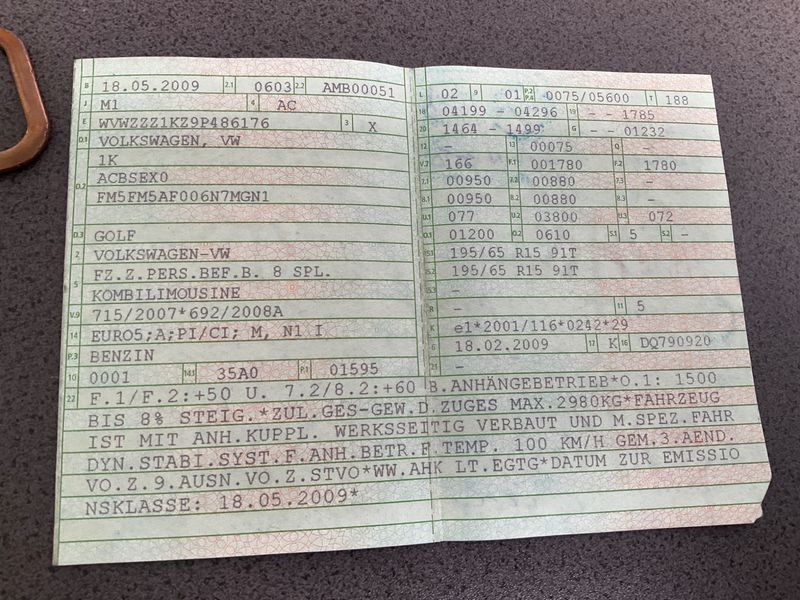 B 18.05.2009 2.1 0603 2.2 AMB00051
J M1 4 AC
E WVWZZZ1KZ9P486176 3 X
D.1 VOLKSWAGEN, VW
1K
D.2 ACBSEX0
FM5FM5AF006N7MGN1
D.3 GOLF
2 VOLKSWAGEN-VW
5 FZ.Z.PERS.BEF.B. 8 SPL.
KOMBILIMOUSINE
V.9 715/2007*692/2008A
14 EURO5;A;PI/CI; M, N1 I
P.3 BENZIN
10 0001 14.1 35A0 P.1 01595
L 02 9 01 P.2 P.4 0075/05600 T 188
18 04199 - 04296 19 - - 1785
20 1464 - 1499 G - - 01232
12 - 13 00075 Q -
V.7 166 F.1 001780 F.2 1780
7.1 00950 7.2 00880 7.3 -
8.1 00950 8.2 00880 8.3 -
U.1 077 U.2 03800 U.3 072
O.1 01200 O.2 0610 S.1 5 S.2 -
15.1 195/65 R15 91T
15.2 195/65 R15 91T
15.3 -
R - 11 5
K e1*2001/116*0242*29
6 18.02.2009 17 K 16 DQ790920
21 -
22 F.1/F.2:+50 U. 7.2/8.2:+60 B.ANHÄNGEBETRIEB*O.1: 1500
BIS 8% STEIG.*ZUL.GES-GEW.D.ZUGES MAX.2980KG*FAHRZEUG
IST MIT ANH.KUPPL. WERKSSEITIG VERBAUT UND M.SPEZ.FAHR
DYN.STABI.SYST.F.ANH.BETR.F.TEMP. 100 KM/H GEM.3.AEND.
VO.Z.9.AUSN.VO.Z.STVO*WW.AHK LT.EGTG*DATUM ZUR EMISSIO
NSKLASSE: 18.05.2009*